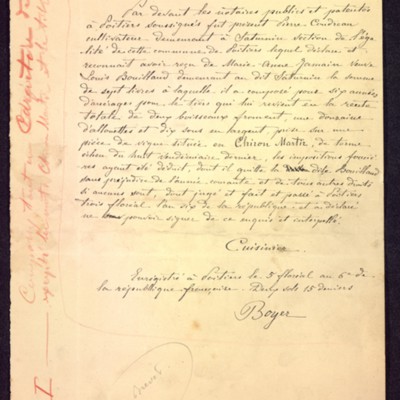 Par devant les notaires publics et patentés
à Poitiers soussignés fut présent Pierre Coudreau
cultivateur demeurant à Saturnin section de l'éga
lité de cette commune de Poitiers lequel déclare et
reconnait avoir reçu de Marie Anne Jamain veuve
Louis Bouilland demeurant au dit Saturnin la somme
de sept livres à laquelle il a composé pour six années
d'arrérages pour le tiers qui lui revient en la rente
totale de deux boisseaux froment, une douzaine
d'allouettes et dix sous en argent, prise sur une
pièce de vigne située en Chiron Martin, de terme
échu du huit vendémiaire dernier, les impositions fonciè
res ayant été déduit, dont il quitte la dite Bouilland
sans préjudice de l'année courante et de tous autres droits
si aucuns sont, dont jugé et fait et passé à Poitiers
trois floréal l'an six de la république, et a déclaré
ne pouvoir signer de ce enquis et interpellé
Cuisinier
Enregistré à Poitiers le 5 floréal an 6 de
la république française. Deux sols 15 deniers
Boyer